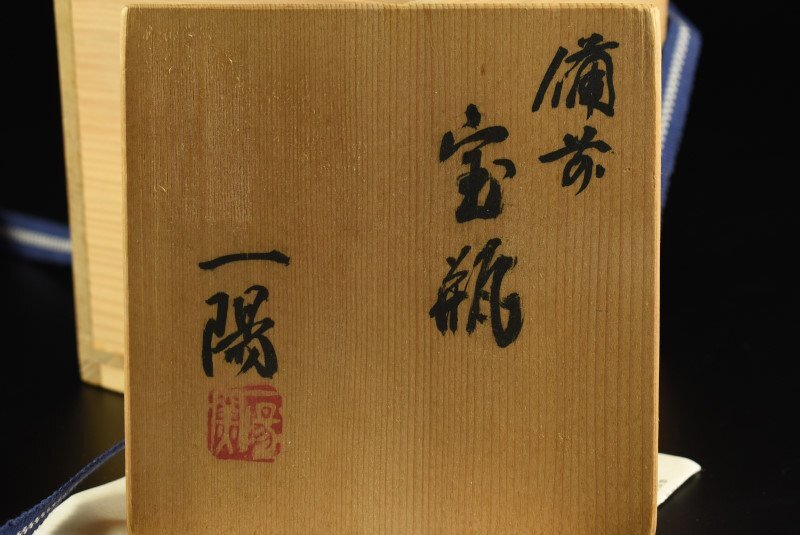 備前
宝瓶
一陽